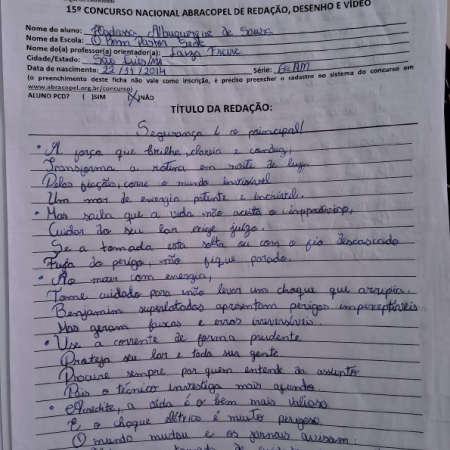 15º CONCURSO NACIONAL ABRACOPEL DE REDAÇÃO, DESENHO E VÍDEO
Nome do aluno: Hadassa Albuquerque de Sousa
Nome da Escola: O Bom Pastor Sude
Nome do(a) professor(a) orientador(a): Layza Freire
Cidade/Estado: São Luís/MA
Data de nascimento: 22/11/2014 Série: 6º AM
(o preenchimento desta ficha não vale como inscrição, é preciso preencher o cadastro no sistema do concurso em
www.abracopel.org.br/concurso)
ALUNO PCD? ( )SIM (X)NÃO
TÍTULO DA REDAÇÃO:
Segurança é o principal!
• A força que brilha, clareia e conduz,
Transforma a rotina em noite de luz.
Pela fiação, corre o mundo invisível
Um mar de energia potente e incrível.
• Mas saiba que a vida não aceita o improviso,
Cuidar do seu lar exige juízo.
Se a tomada esta solta ou com o fio descascado
Fuja do perigo, não fique parado.
• Ao mexer com energia,
Tome cuidado para não levar um choque que arrepia.
Benjamim superlotados apresentam perigos imperceptíveis
Mas geram faíscas e erros irreversíveis.
• Use a corrente de forma prudente
Proteja seu lar e toda sua gente.
Procure sempre por quem entende do assunto
Pois o técnico investiga mais a fundo
• Acredite, a vida é o bem mais valioso
E o choque elétrico é muito perigoso
O mundo mudou e os jornais avisam: